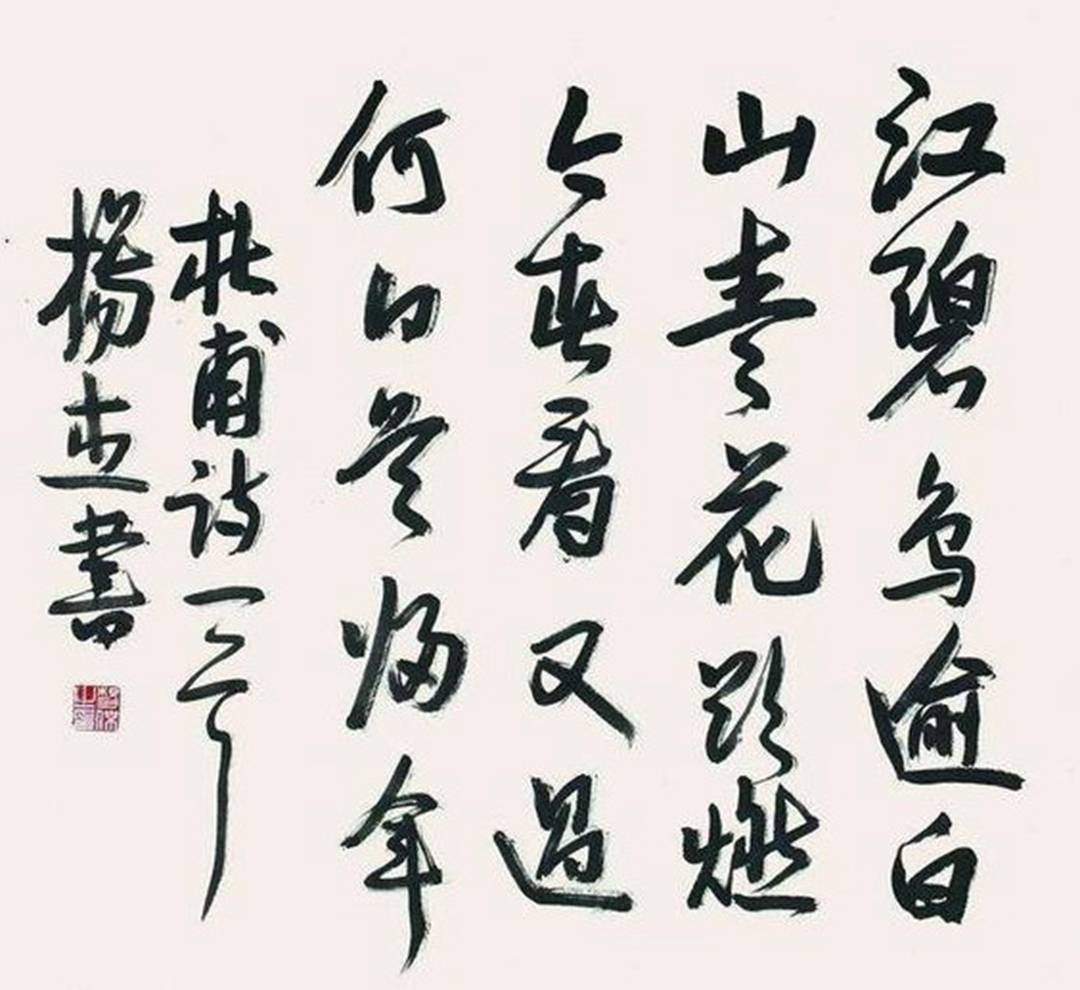 江碧鸟逾白
山青花欲燃
今春看又过
何日是归年
杜甫诗一首
杨
书